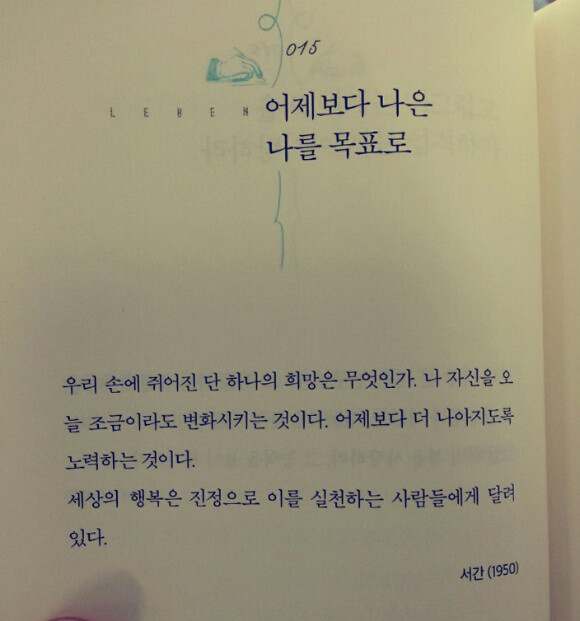 015
LEBEN
어제보다 나은
나를 목표로
우리 손에 쥐어진 단 하나의 희망은 무엇인가. 나 자신을 오
늘 조금이라도 변화시키는 것이다. 어제보다 더 나아지도록
노력하는 것이다.
세상의 행복은 진정으로 이를 실천하는 사람들에게 달려
있다.
서간 (1950)